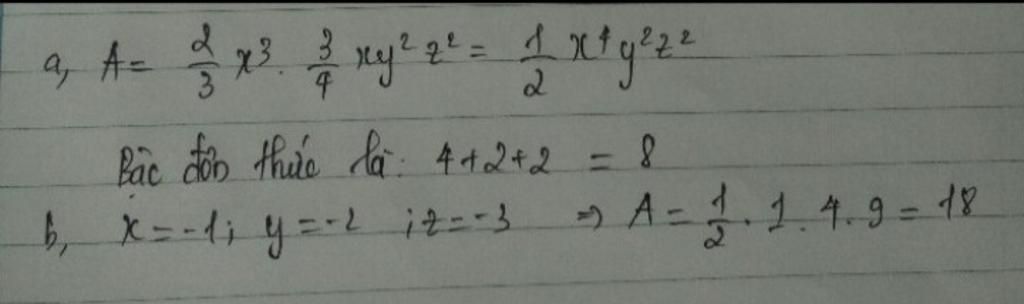 a, A = 2/3 x³ . 3/4 xy² z² = 1/2 x⁴y²z²
Bậc đơn thức là: 4+2+2 = 8
b, x = -1; y = -2 ; z = -3 ⇒ A = 1/2 . 1 . 4 . 9 = 18